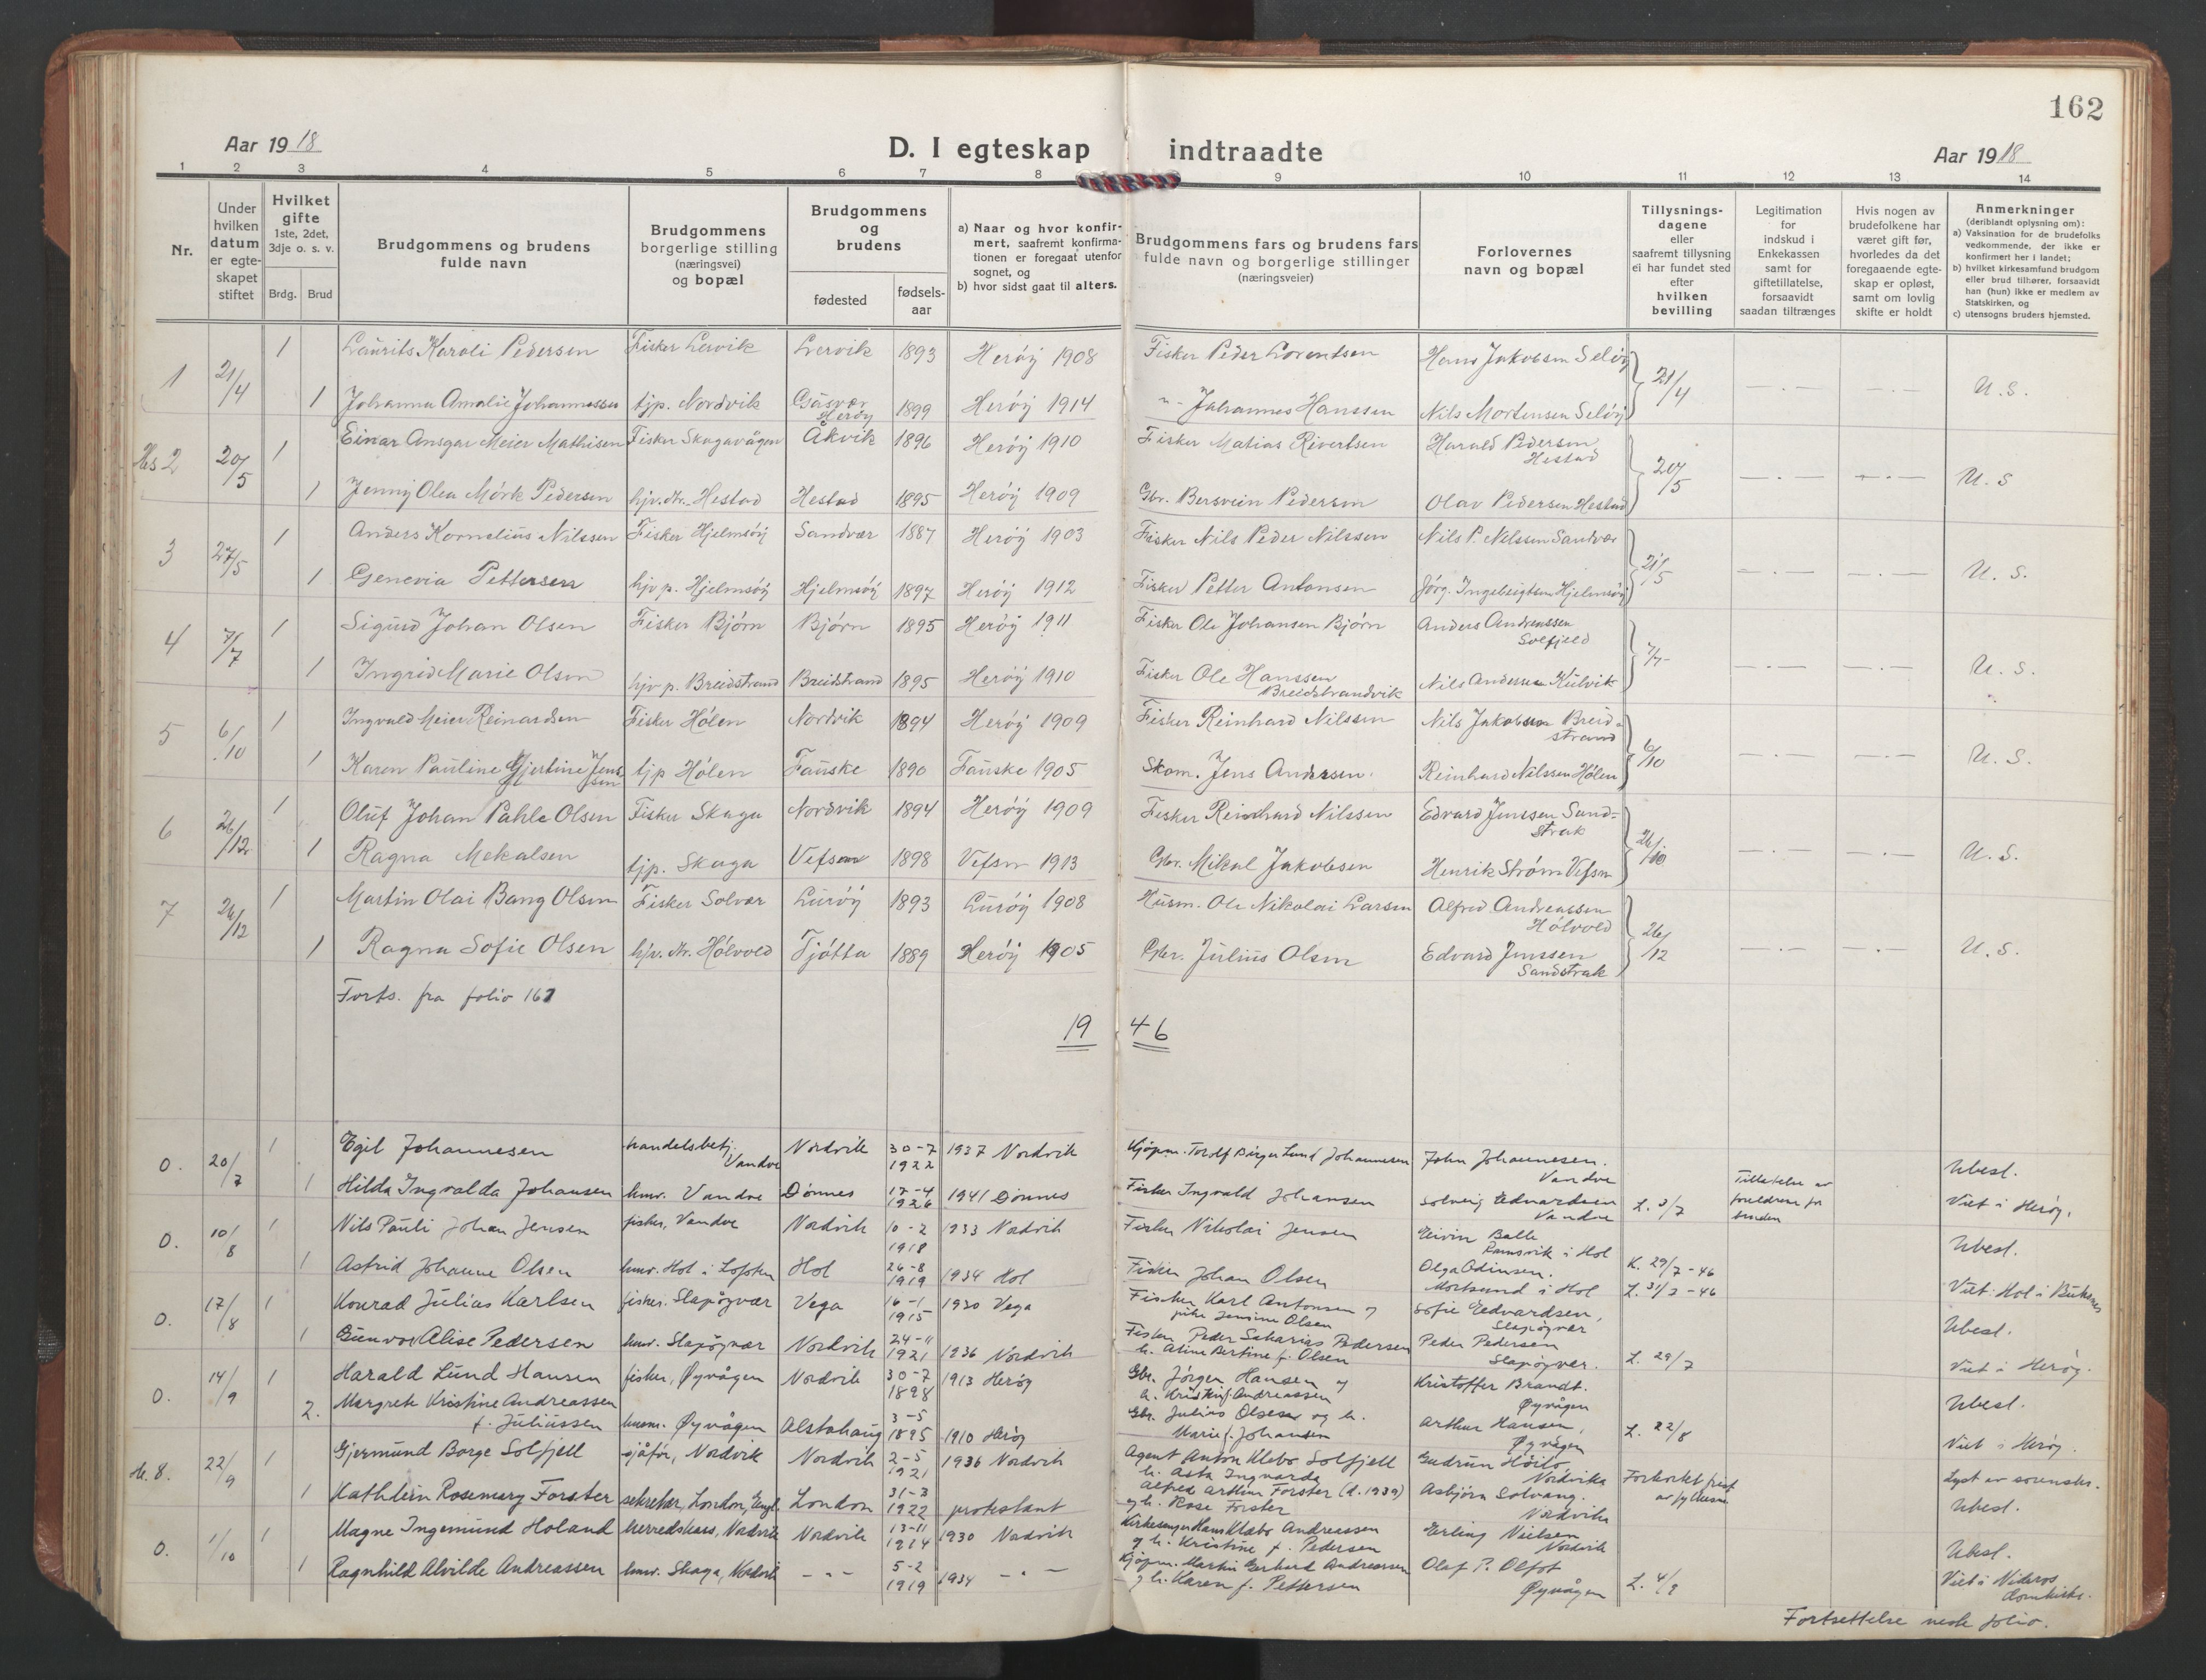 162
Aar 1918
D. I egteskap indtraadte
Aar 1918
1 2 3 4 5 6 7 8 9 10 11 12 13 14
Nr.
Under hvilken datum er egteskapet stiftet
Hvilket gifte 1ste, 2det, 3dje o. s. v.
Brdg. Brud
Brudgommens og brudens fulde navn
Brudgommens borgerlige stilling (næringsvei) og bopæl
Brudgommens og brudens
fødested
fødsels-aar
a) Naar og hvor konfirmert, saafremt konfirmationen er foregaat utenfor sognet, og
b) hvor sidst gaat til alters.
Brudgommens fars og brudens fars fulde navn og borgerlige stillinger (næringsveier)
Forlovernes navn og bopæl
Tillysnings-dagene eller saafremt tillysning ei har fundet sted efter hvilken bevilling
Legitimation for indskud i Enkekassen samt for giftetillatelse, forsaavidt saadan tiltrænges
Hvis nogen av brudefolkene har været gift før, hvorledes da det foregaaende egteskap er opløst, samt om lovlig skifte er holdt
Anmerkninger (deriblandt oplysning om):
a) Vaksination for de brudefolks vedkommende, der ikke er konfirmert her i landet;
b) hvilket kirkesamfund brudgom eller brud tilhører, forsaavidt han (hun) ikke er medlem av Statskirken, og
c) utensogns bruders hjemsted.
1 21/4 1 Laurits Karoli Pedersen Fisker Lervik Lervik 1893 Herøy 1908 Fisker Peder Lorentsen Hans Jakobsen Seløy 21/4 U. S.
1 Johanna Amalie Johannessen tjp. Nordvik Gåsvær Herøy 1899 Herøy 1914 " - Johannes Hanssen Nils Mortensen Seløy
Hs 2 20/5 1 Einar Ansgar Meier Mathisen Fisker Skagavågen Åkvik 1896 Herøy 1910 Fisker Matias Rivertsen Harald Pedersen Hestad 20/5 U. S
1 Jenny Olea Mörk Pedersen hjv. dtr. Hestad Hestad 1895 Herøy 1909 Gbr. Bersvein Pedersen Olav Pedersen Hestad
3 27/5 1 Anders Kornelius Nilssen Fisker Hjelmsöy Sandvær 1887 Herøy 1903 Fisker Nils Peder Nilssen Nils P. Nilssen Sandvær U. S.
1 Genevia Pettersen hjv p. Hjelmsöy Hjelmsöy 1897 Herøy 1912 Fisker Petter Antonsen Jörg. Ingebrigtsen Hjelmsöy
4 7/7 1 Sigurd Johan Olsen Fisker Bjørn Bjørn 1895 Herøy 1911 Fisker Ole Johansen Bjørn Anders Andreassen Solfjeld 7/7 U. S.
1 Ingrid Marie Olsen hjv p. Breidstrand Breidstrand 1895 Herøy 1910 Fisker Ole Hanssen Breidstrandvik Nils Andersen Kulvik
5 6/10 1 Ingvald Meier Reinardsen Fisker Hólen Nordvik 1894 Herøy 1909 Fisker Reinhard Nilssen Nils Jakobsen Breidstrand 6/10 U. S.
1 Karen Pauline Gjertine Jenssen tjp Hólen Fauske 1890 Fauske 1905 Skom. Jens Andersen. Reinhard Nilssen Hólen
6 26/12 1 Oluf Johan Pahle Olsen Fisker Skaga Nordvik 1894 Herøy 1909 Fisker Reinhard Nilssen Edvard Jenssen Sandstrak U. S.
1 Ragna Mekalsen tjp. Skaga Vefsn 1898 Vefsn 1913 Gbr. Mikal Jakobsen Henrik Strøm Vefsn
7 26/12 1 Martin Olai Bang Olsen Fisker Solvær Luröy 1893 Luröy 1908 Husm. Ole Nikolai Larsen Alfred Andreassen Hólvold 26/12 U. S.
1 Ragna Sofie Olsen hjv. dtr. Hólvold Tjötta 1889 Herøy 1905 Gbr. Julius Olsen Edvard Jenssen Sandstrak
Forts. fra folio 161
19 46
0. 20/7 1 Egil Johannesen handelsbetj. Vandve Nordvik 30-7 1922 1937 Nordvik Kjøpm. Torolf Birger Lund Johannesen John Johannesen. Vandve Ubesl.
1 Hilda Ingvalda Johansen husv. Vandve Dønnes 17-4 1926 1941 Dønnes Fisker Ingvald Johansen Solveig Edvardsen Vandve L. 3/7 Tillatelse av foreldrene for bruden Viet i Herøy.
0. 10/8 1 Nils Pauli Johan Jensen fisker, Vandve Nordvik 10-2 1918 1933 Nordvik Fisker Nikolai Jensen Eivin Balle Ramsvik i Hol Ubesl.
1 Astrid Johanne Olsen husv. Hol i Lofoten Hol 26-8 1919 1934 Hol Fisker Johan Olsen Olga Odinsen. Mortsund i Hol K. 29/7-46 L. 31/7-46 Viet: Hol i Buksnes
0. 17/8 1 Konrad Julius Karlsen fisker. Slapøyvær Vega 16-1 1915 1930 Vega Fisker Karl Antonsen og pike Jensine Olsen Sofie Edvardsen, Slapøyvær Ubesl.
1 Gunvor Alise Pedersen husv. Slapøyvær Nordvik 24-11 1921 1936 Nordvik Fisker Peder Sakarias Pedersen h. Aline Bertine f. Olsen Peder Pedersen Slapøyvær. L. 29/7 Viet i Herøy.
0. 14/9 1 Harald Lund Hansen fisker, Øyvågen Nordvik 30-7 1898 1913 Herøy Gbr. Jørgen Hansen og h. Kristine f. Andreassen Kristoffer Brandt. Øyvågen Ubesl.
2. Margrete Kristine Andreassen f. Juliussen husm. Øyvågen Alstahaug 3-5 1895 1910 Herøy Gbr. Julius Olsen og h. Marie f. Johansen Arthur Hansen, Øyvågen L. 22/8 Viet i Herøy.
H. 8. 22/9 1 Gjermund Borge Solfjell sjåfør, Nordvik Nordvik 2-5 1921 1936 Nordvik Agent Anton Klebo Solfjell h. Asta Ingvarda Gudrun Høilo, Nordvika Forkortet frist Lyst av sorenskr.
1 Kathleen Rosemary Forster sekretær, London, Engl. London 31-3 1922 protestant Alfred Arthur Forster (d. 1939) og h. Rose Forster Asbjørn Solvang. Nordvika Ubesl.
0. 1/10 1 Magne Ingemund Holand herredskass, Nordvik Nordvik 13-11 1914 1930 Nordvik Kirkesanger Hans Klæbo Andreassen og h. Kristine f. Pedersen Erling Nielsen Nordvik Ubesl.
1 Ragnhild Alvilde Andreassen husv. Skaga, Nordvik - " - 5-2 1919 1934 - " - Kjøpm. Martin Gerhard Andreassen og h. Karen f. Pettersen Olaf P. Olfot Øyvågen L. 4/9 Viet i Nidaros domkirke.
Fortsettelse neste folio.